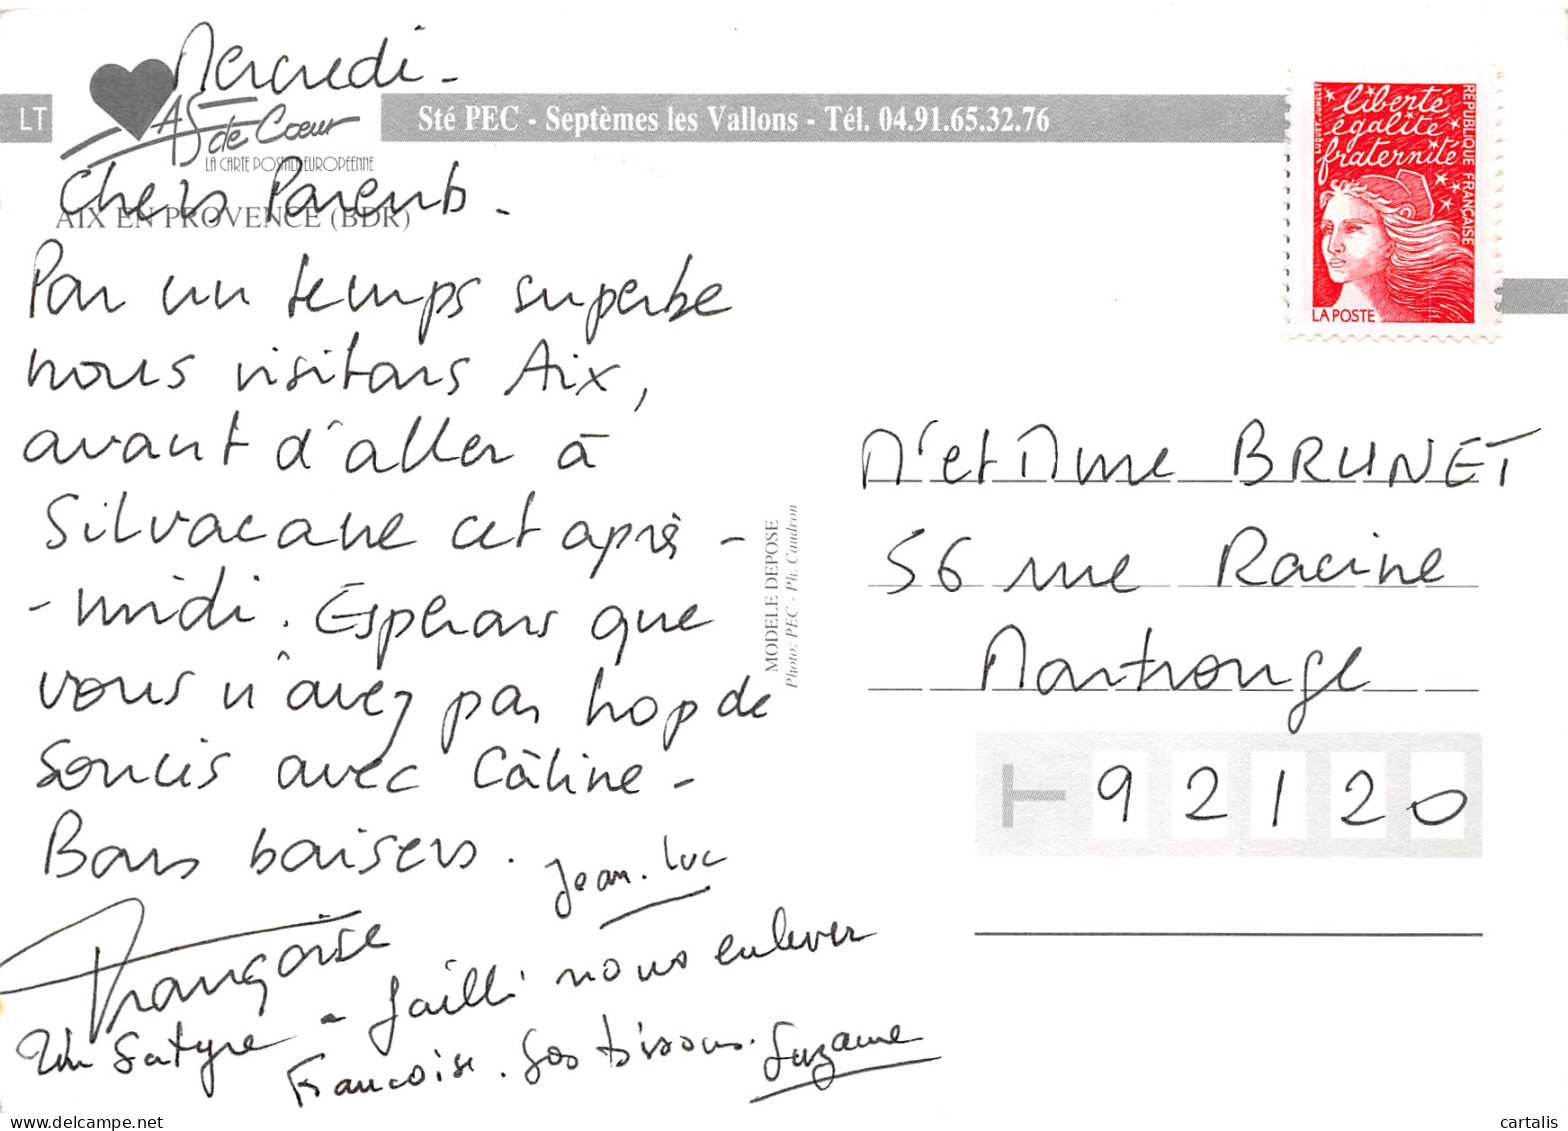 Mercredi -
LT
AS de Cœur
LA CARTE POSTALE EUROPEENNE
Sté PEC - Septèmes les Vallons - Tél. 04.91.65.32.76
AIX EN PROVENCE (BDR)
Chers Parents -
Par un temps superbe
nous visitons Aix,
avant d'aller à
Silvacane cet après -
- midi. Espérons que
vous n'avez pas trop de
soucis avec Câline -
Bons baisers.
Jean-Luc
Françoise
Un Satyre - failli nous enlever
Françoise. Gros bisous. Suzanne
MODELE DEPOSE
Photo: PEC - Ph. Caudron
liberté
égalité
fraternité
REPUBLIQUE FRANÇAISE
LA POSTE
M et Mme BRUNET
56 rue Racine
Montrouge
92120
cartalis